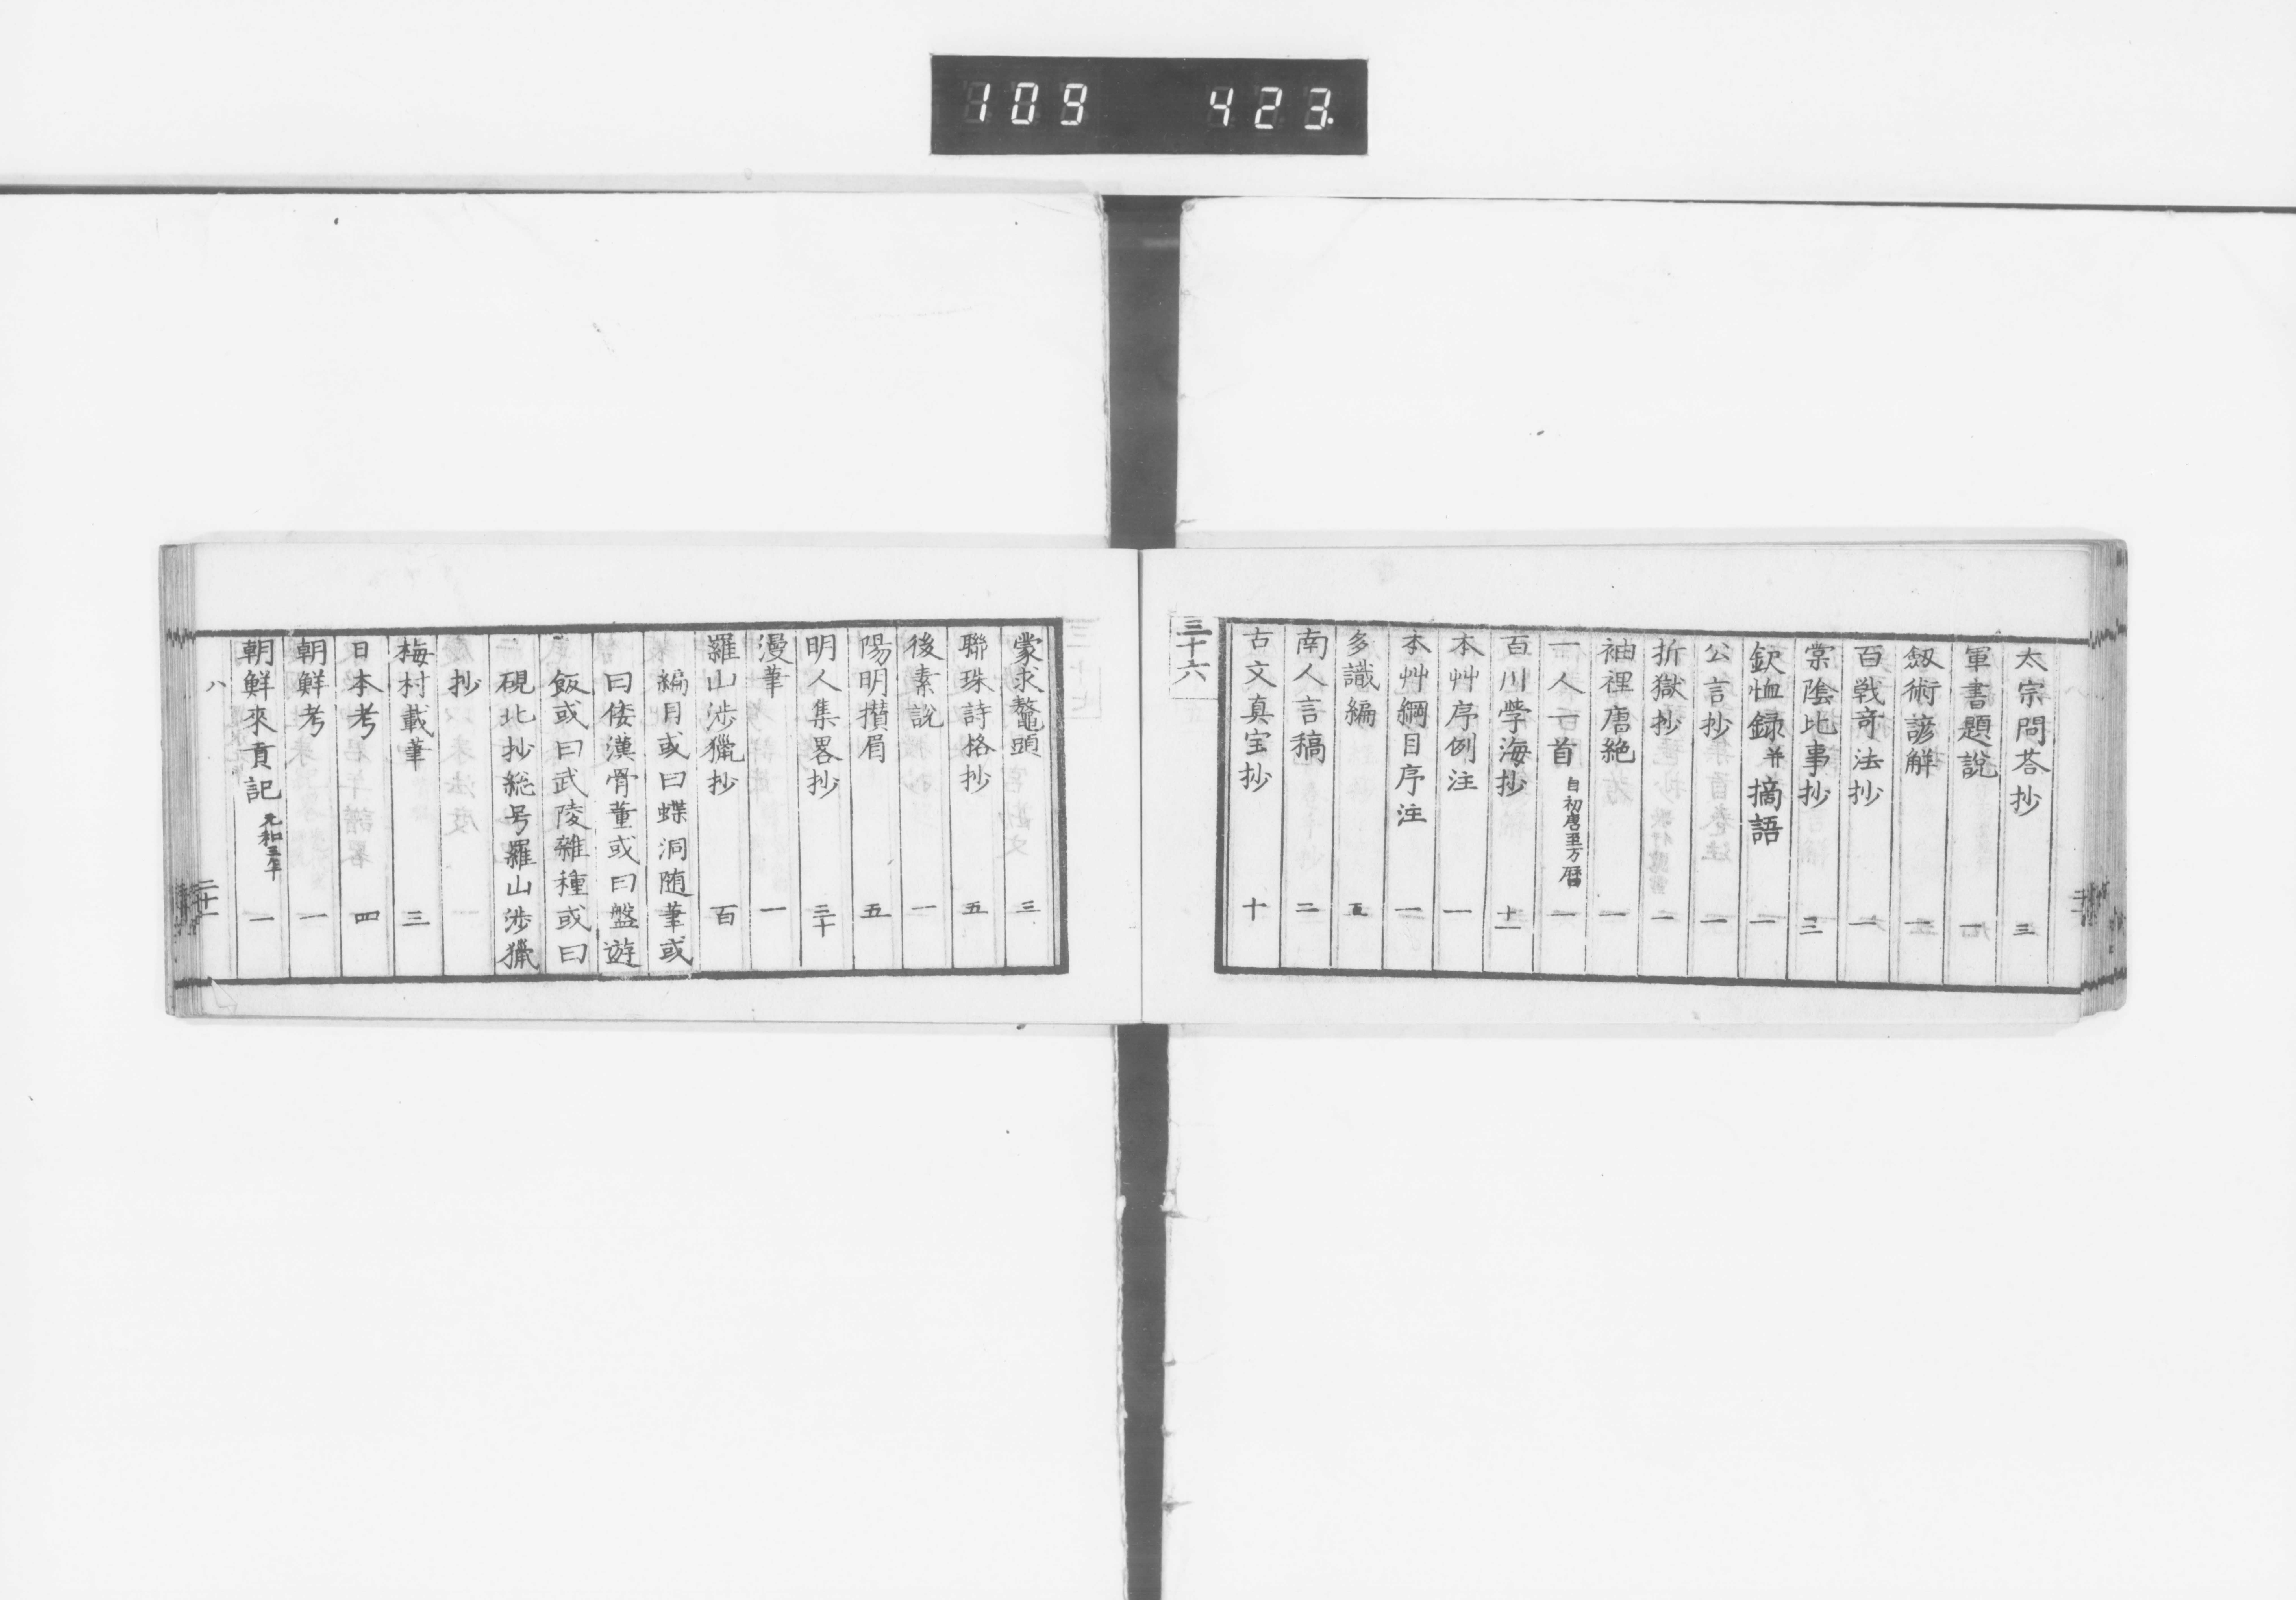 109 423
太宗問荅抄 三
軍書題說 一
劔術諺解
百戰竒法抄 一
棠陰比事抄 三
欽恤録并摘語 一
公言抄 一
折獄抄 一
袖裡唐絶 一
一人一首 自初唐至万曆 一
百川學海抄 十一
本艸序例注 一
本艸綱目序注 一
多識編 五
南人言稿 二
古文真宝抄 十
三十六
蒙求鼇頭 三
聯珠詩格抄 五
後素說 一
陽明攅眉 五
明人集畧抄 三十
漫筆 一
羅山涉獵抄 百
編月或曰蝶洞随筆或
曰倭漢骨董或曰盤遊
飯或曰武陵雜種或曰
硯北抄総号羅山渉獵
抄
梅村載筆 三
日本考 四
朝鮮考 一
朝鮮來貢記 元和三年 一
八 二十一